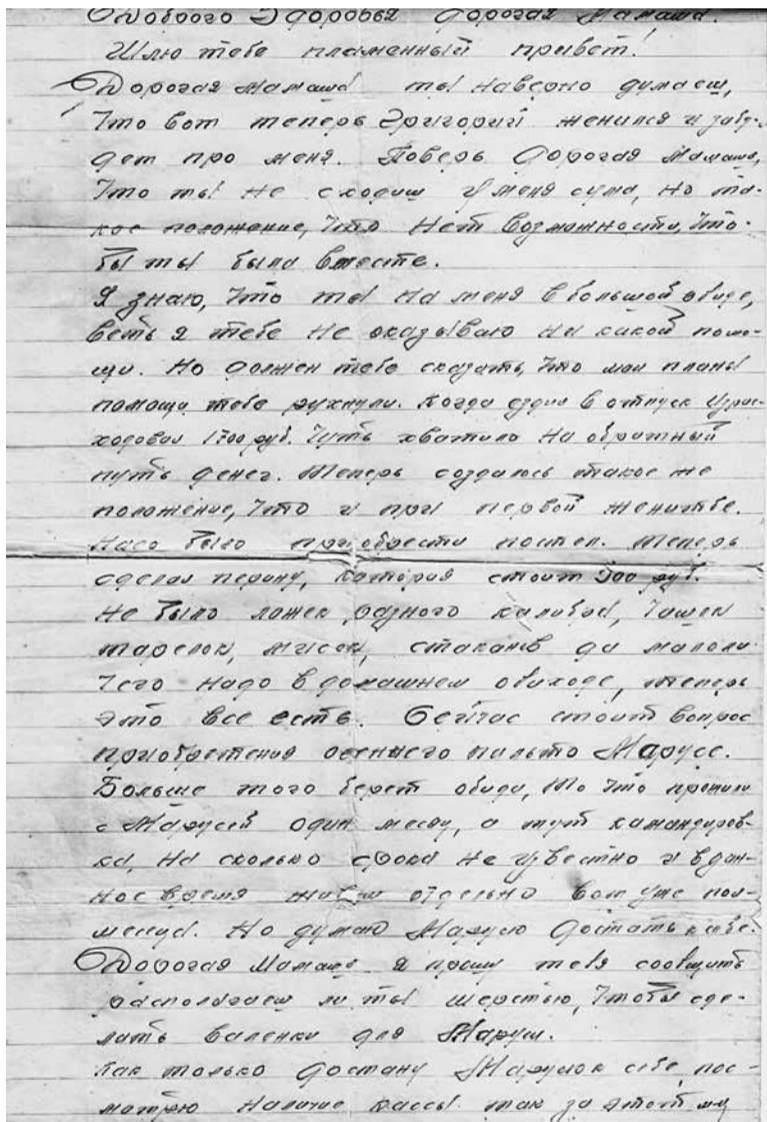 Доброго Здоровья Дорогая Мамаша.
Шлю тебе пламенный привет!
Дорогая Мамаша ты наверно думаеш,
Что вот теперь Григорий женился и забу-
дет про меня. Поверь Дорогая Мамаша,
Что ты не сходиш у меня сума, но та-
кое положение, Что нет возможности, Что-
бы ты была вместе.
Я знаю, Что ты на меня в большой обиде,
веть я тебе не оказываю ни какой помо-
щи. Но должен тебе сказать, Что мои планы
помощи тебе рухнули. Когда ездил в отпуск израс-
ходовал 1700 руб. Чуть хватило на обратный
путь денег. Теперь создалось такое же
положение, Что и при первой женитьбе.
Надо было приобрести постел. Теперь
сделал перину, которая стоит 500 руб.
Не было ложек разного калибра, Чашек
тарелок, мисок, стаканов да мало ли
Чего надо в домашнем обиходе, теперь
это все есть. Сейчас стоит вопрос
приобретения осеннего пальто Марусе.
Больше того берет обида, то Что прожили
с Марусей один месяц, а тут камандиров-
ка, на сколько срока не известно и в дан-
ное время живем отдельно вот уже пол-
месяца. Но думаю Марусю достать к себе.
Дорогая Мамаша я прошу тебя сообщить
располагаеш ли ты шерстью, Чтобы сде-
лать валенки для Маруси.
Как только достану Марусю к себе, пос-
мотрю наличие кассы так за этот